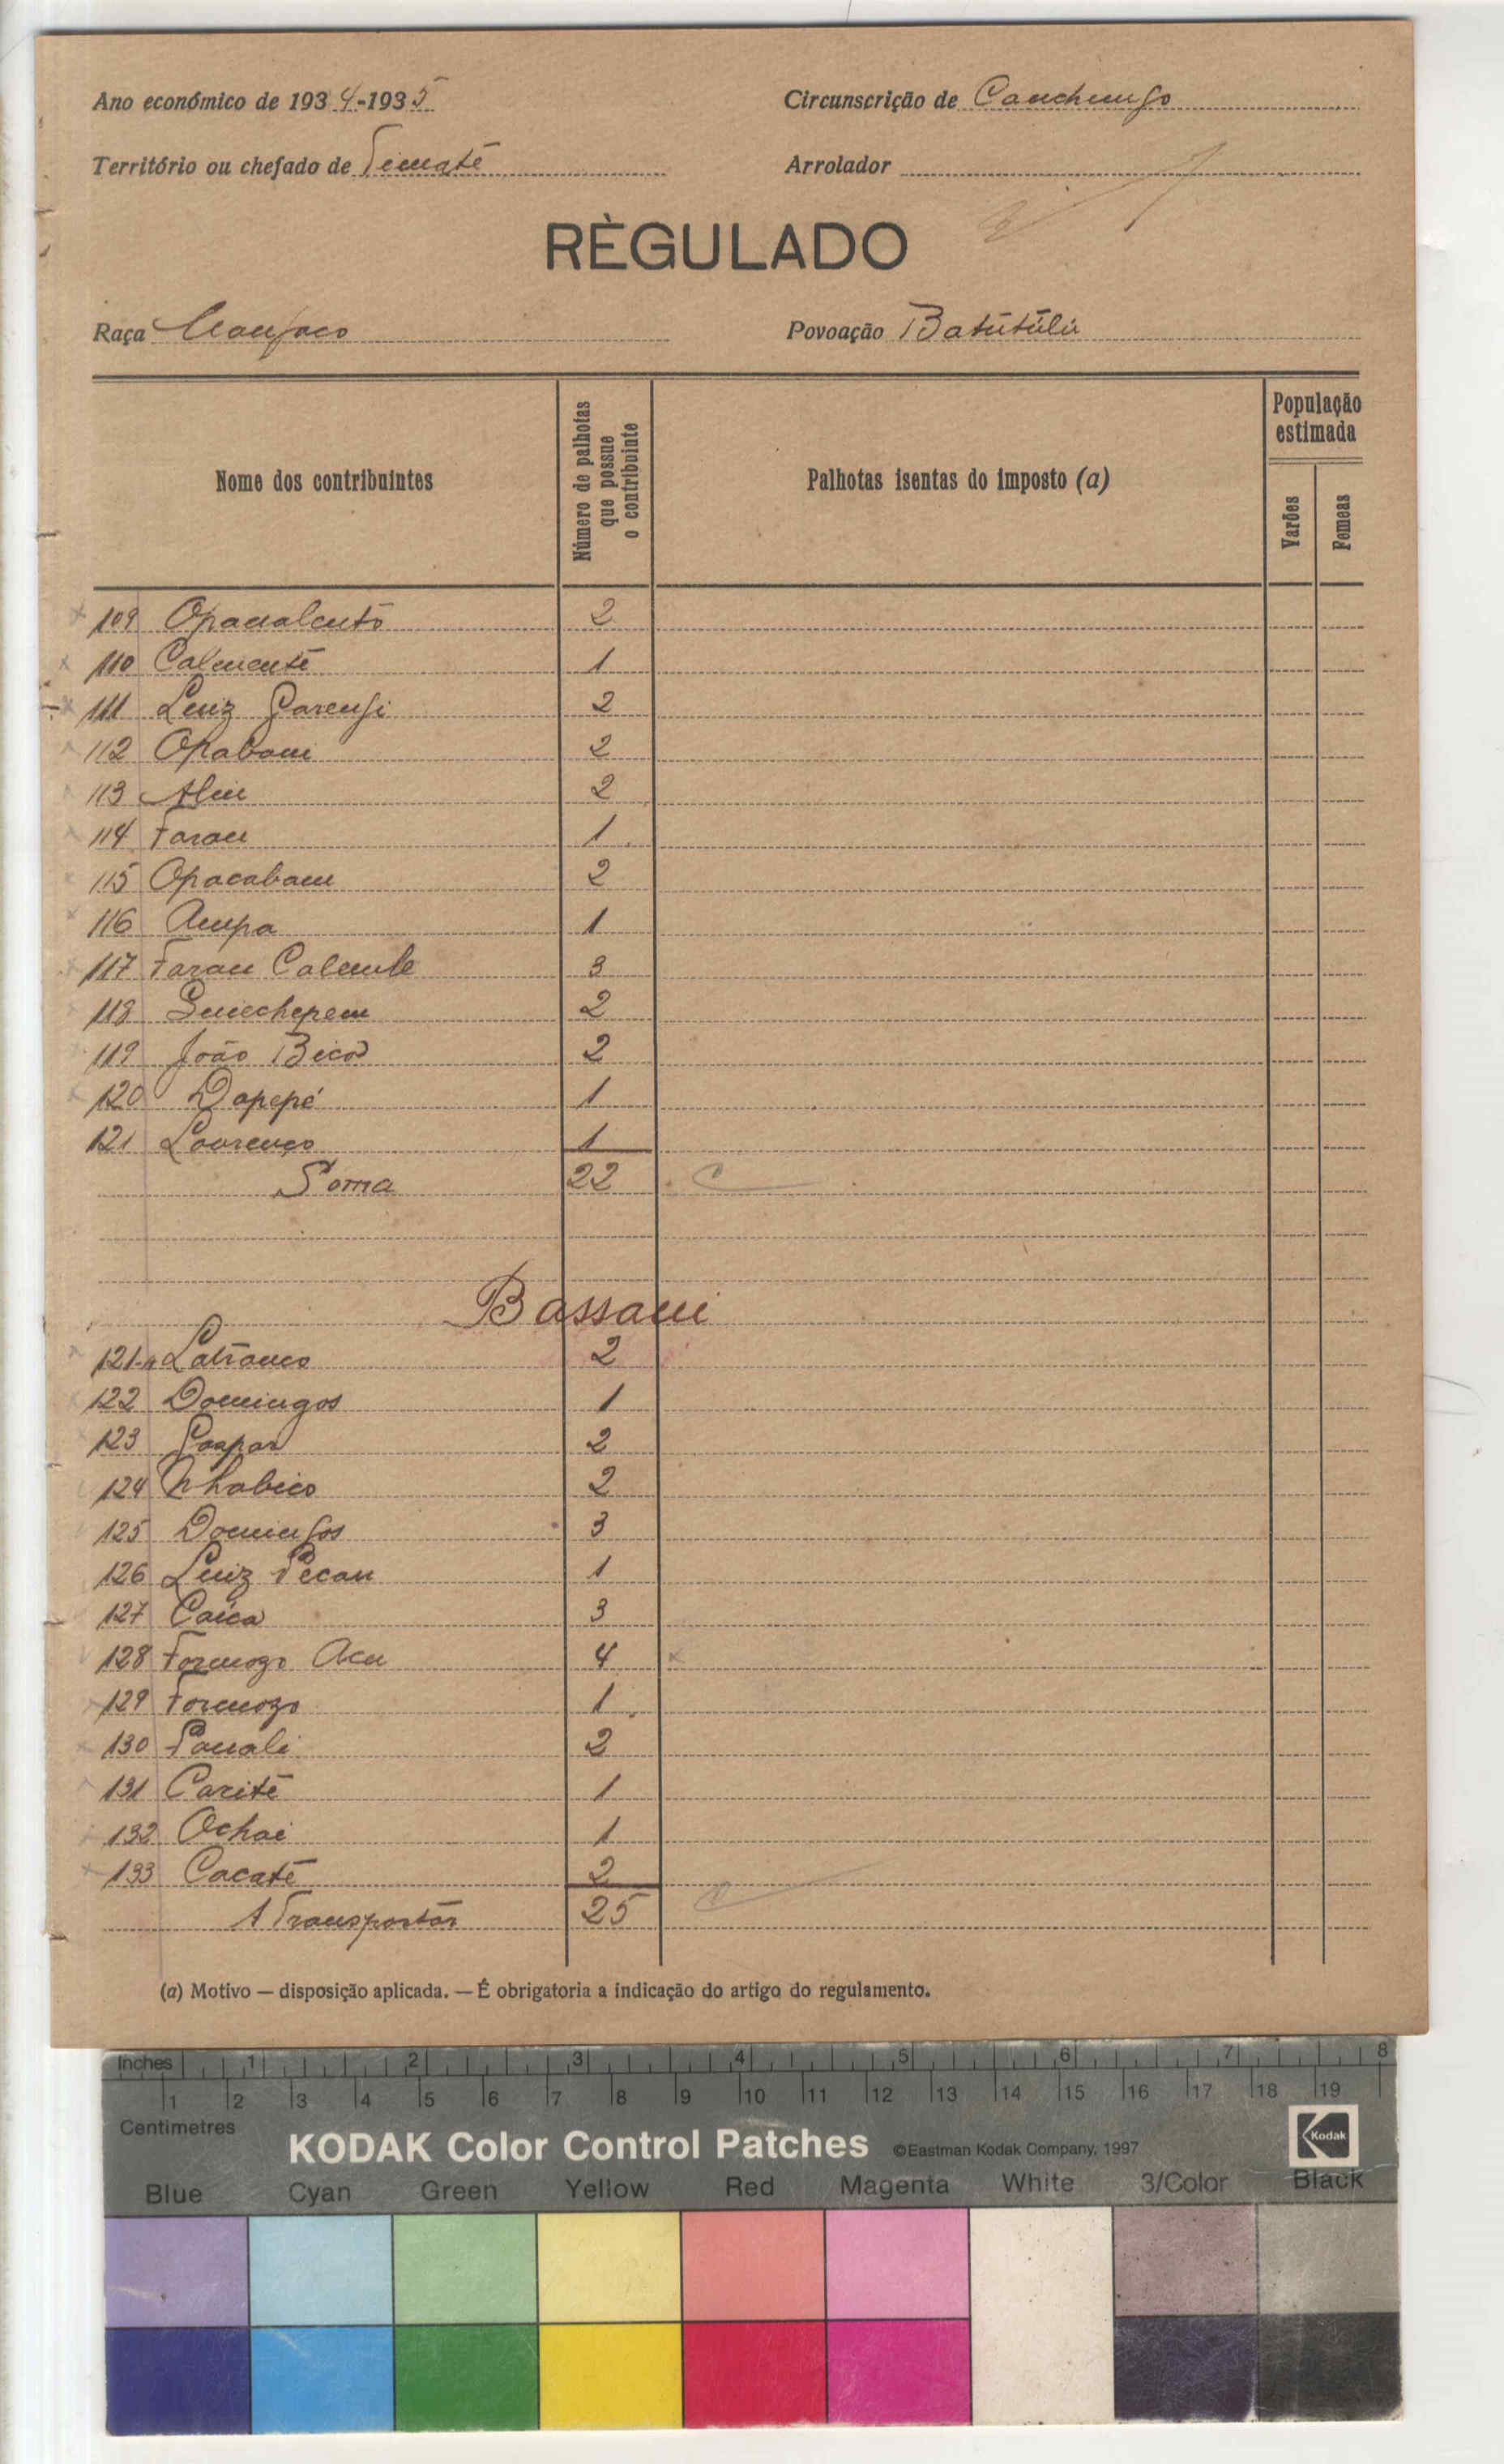 Ano económico de 1934-1935 Circunscrição de Canchungo
Território ou chefado de Timaté Arrolador
RÈGULADO
Raça Manjaco Povoação Batútúlú
Nome dos contribuintes
Número de palhotas que possue o contribuinte
Palhotas isentas do imposto (a)
População estimada
Varões
Femeas
109 2
110 Calmenté 1
111 Luiz 2
112 Opabam 2
113 2
114 Faran 1
115 Opacabam 2
116 Ampa 1
117 Faran 3
118 2
119 João Bico 2
120 Dapepé 1
121 Lourenço 1
Soma 22
Bassam
121-A 2
122 Domingos 1
123 Gaspar 2
124 Nhabico 2
125 Domingos 3
126 Luiz Pecan 1
127 Caica 3
128 Formozo 4
129 Formozo 1
130 2
131 Carité 1
132 Ochai 1
133 Cacaté 2
A Transportár 25
(a) Motivo — disposição aplicada. — É obrigatoria a indicação do artigo do regulamento.
Inches 1 2 3 4 5 6 7 8
1 2 3 4 5 6 7 8 9 10 11 12 13 14 15 16 17 18 19
Centimetres
KODAK Color Control Patches ©Eastman Kodak Company, 1997 Kodak
Blue Cyan Green Yellow Red Magenta White 3/Color Black